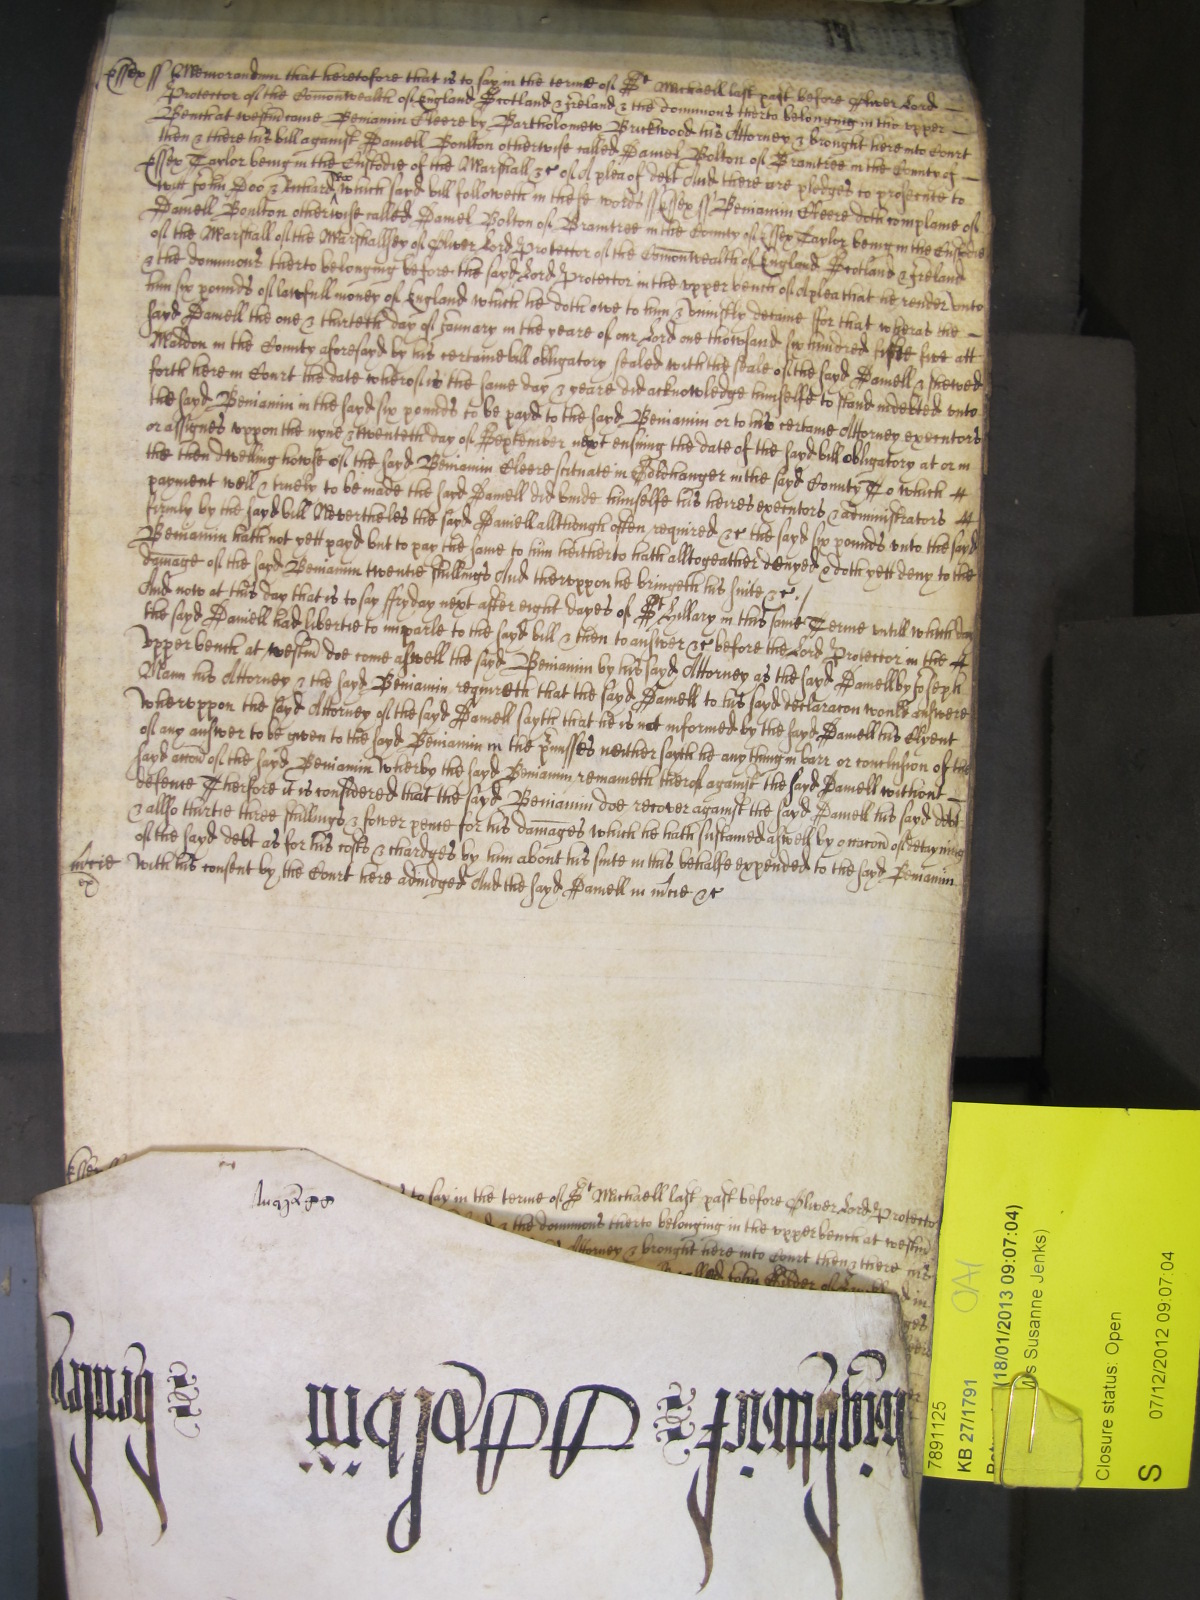 Essex ss Memorandum that heretofore that is to say in the terme of St Michaell last past before Oliver Lord
Protector of the Comonwealth of England Scotland & Ireland & the dominions therto belonging in the vpper
Bench at westm came Beniamin Cleere by Bartholomew Brickwood his Attorney & brought here into Court
then & there his bill against Daniell Boulton otherwise called Daniel Bolton of Braintree in the County of
Essex Taylor being in the Custodie of the Marshall &c of A plea of debt And there are pledges to prosecute to
witt John Doo & Richard Roo which sayd bill followeth in these words ss Essex ss Beniamin Cleere doth complaine of
Daniell Boulton otherwise called Daniel Bolton of Braintree in the County of Essex Taylor being in the Custodie
of the Marshall of the Marshallsey of Oliver Lord Protector of the Comonwealth of England Scotland & Ireland
& the dominions therto belonging before the sayd Lord Protector in the vpper bench of A plea that he render vnto
him six pounds of lawfull money of England which he doth owe to him & vniustly detaine ffor that wheras the
sayd Daniell the one & thirteth day of January in the yeare of our Lord one thowsand six hundred fiftie five att
Maldon in the County aforesayd by his certaine bill obligatory sealed with the seale of the sayd Daniell & shewed
forth here in Court the date wherof is the same day & yeare did acknowledge himselfe to stand indebted vnto
the sayd Beniamin in the sayd six pounds to be payd to the sayd Beniamin or to his certaine Attorney executors
or assignes vppon the nyne & twenteth day of September next ensuing the date of the sayd bill obligatory at or in
the then dwelling howse of the sayd Beniamin Cleere scituate in in the sayd County To which
payment well & truely to be made the sayd Daniell did binde himselfe his heires executors & administrators
firmly by the sayd bill Neverthelesse the sayd Daniell allthough often required &c the sayd six pounds vnto the sayd
Beniamin hath not yett payd but to pay the same to him hitherto hath alltogeather denyed & doth yett deny to the
damage of the sayd Beniamin twentie shillings And thervppon he bringeth his suite &c
And now at this day that is to say ffryday next after eight dayes of St Hillary in this same Terme vntill which day
the sayd Daniell had libertie to imparle to the sayd bill & then to answer &c before the Lord Protector in the
vpper bench at westm doe come aswell the sayd Beniamin by his sayd Attorney as the sayd Daniell by Joseph
Mann his Attorney & the sayd Beniamin requireth that the sayd Daniell to his sayd declaracon would answere
Whervppon the sayd Attorney of the sayd Daniell sayth that he is not informed by the sayd Daniell his Clyent
of any answer to be given to the sayd Beniamin in the pmisses neither sayth he any thing in barr or conclusion of the
sayd accon of the sayd Beniamin wherby the sayd Beniamin remaineth therof against the sayd Daniell without
defence Therfore it is considered that the sayd Beniamin doe recover against the sayd Daniell his sayd debt
& allso thirtie three shillings & fower pence for his damages which he hath sustained aswell by occacon of detayning
of the sayd debt as for his costs & chardges by him about his suite in this behalfe expended to the sayd Beniamin
mcie with his consent by the Court here adiudged And the sayd Daniell in mcie &c
Essex
to say in the terme of St Michaell last past before Oliver Lord Protector
& the dominions therto belonging in the vpper bench at westm
Attorney & brought here into Court then & there his
called John
7891125
KB 27/1791
(18/01/2013 09:07:04)
Ms Susanne Jenks)
Closure status: Open
S
07/12/2012 09:07:04